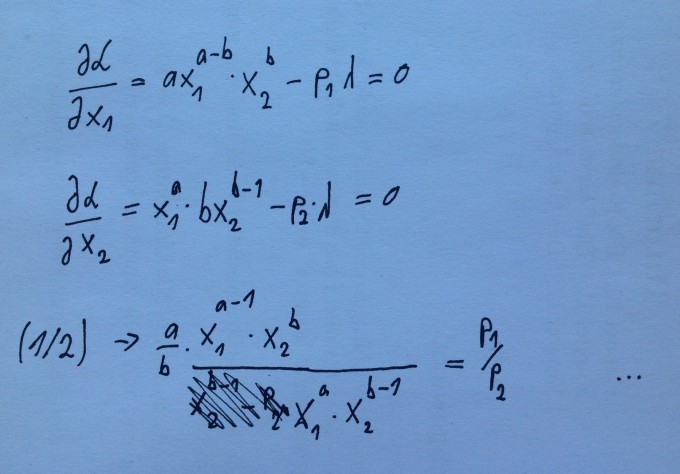 ∂ℒ/∂x₁ = ax₁^(a-b) · x₂^b - p₁λ = 0
∂ℒ/∂x₂ = x₁^a · bx₂^(b-1) - p₂·λ = 0
(1/2) → a/b · (x₁^(a-1) · x₂^b)/(x₁^a · x₂^(b-1)) = p₁/p₂ ...